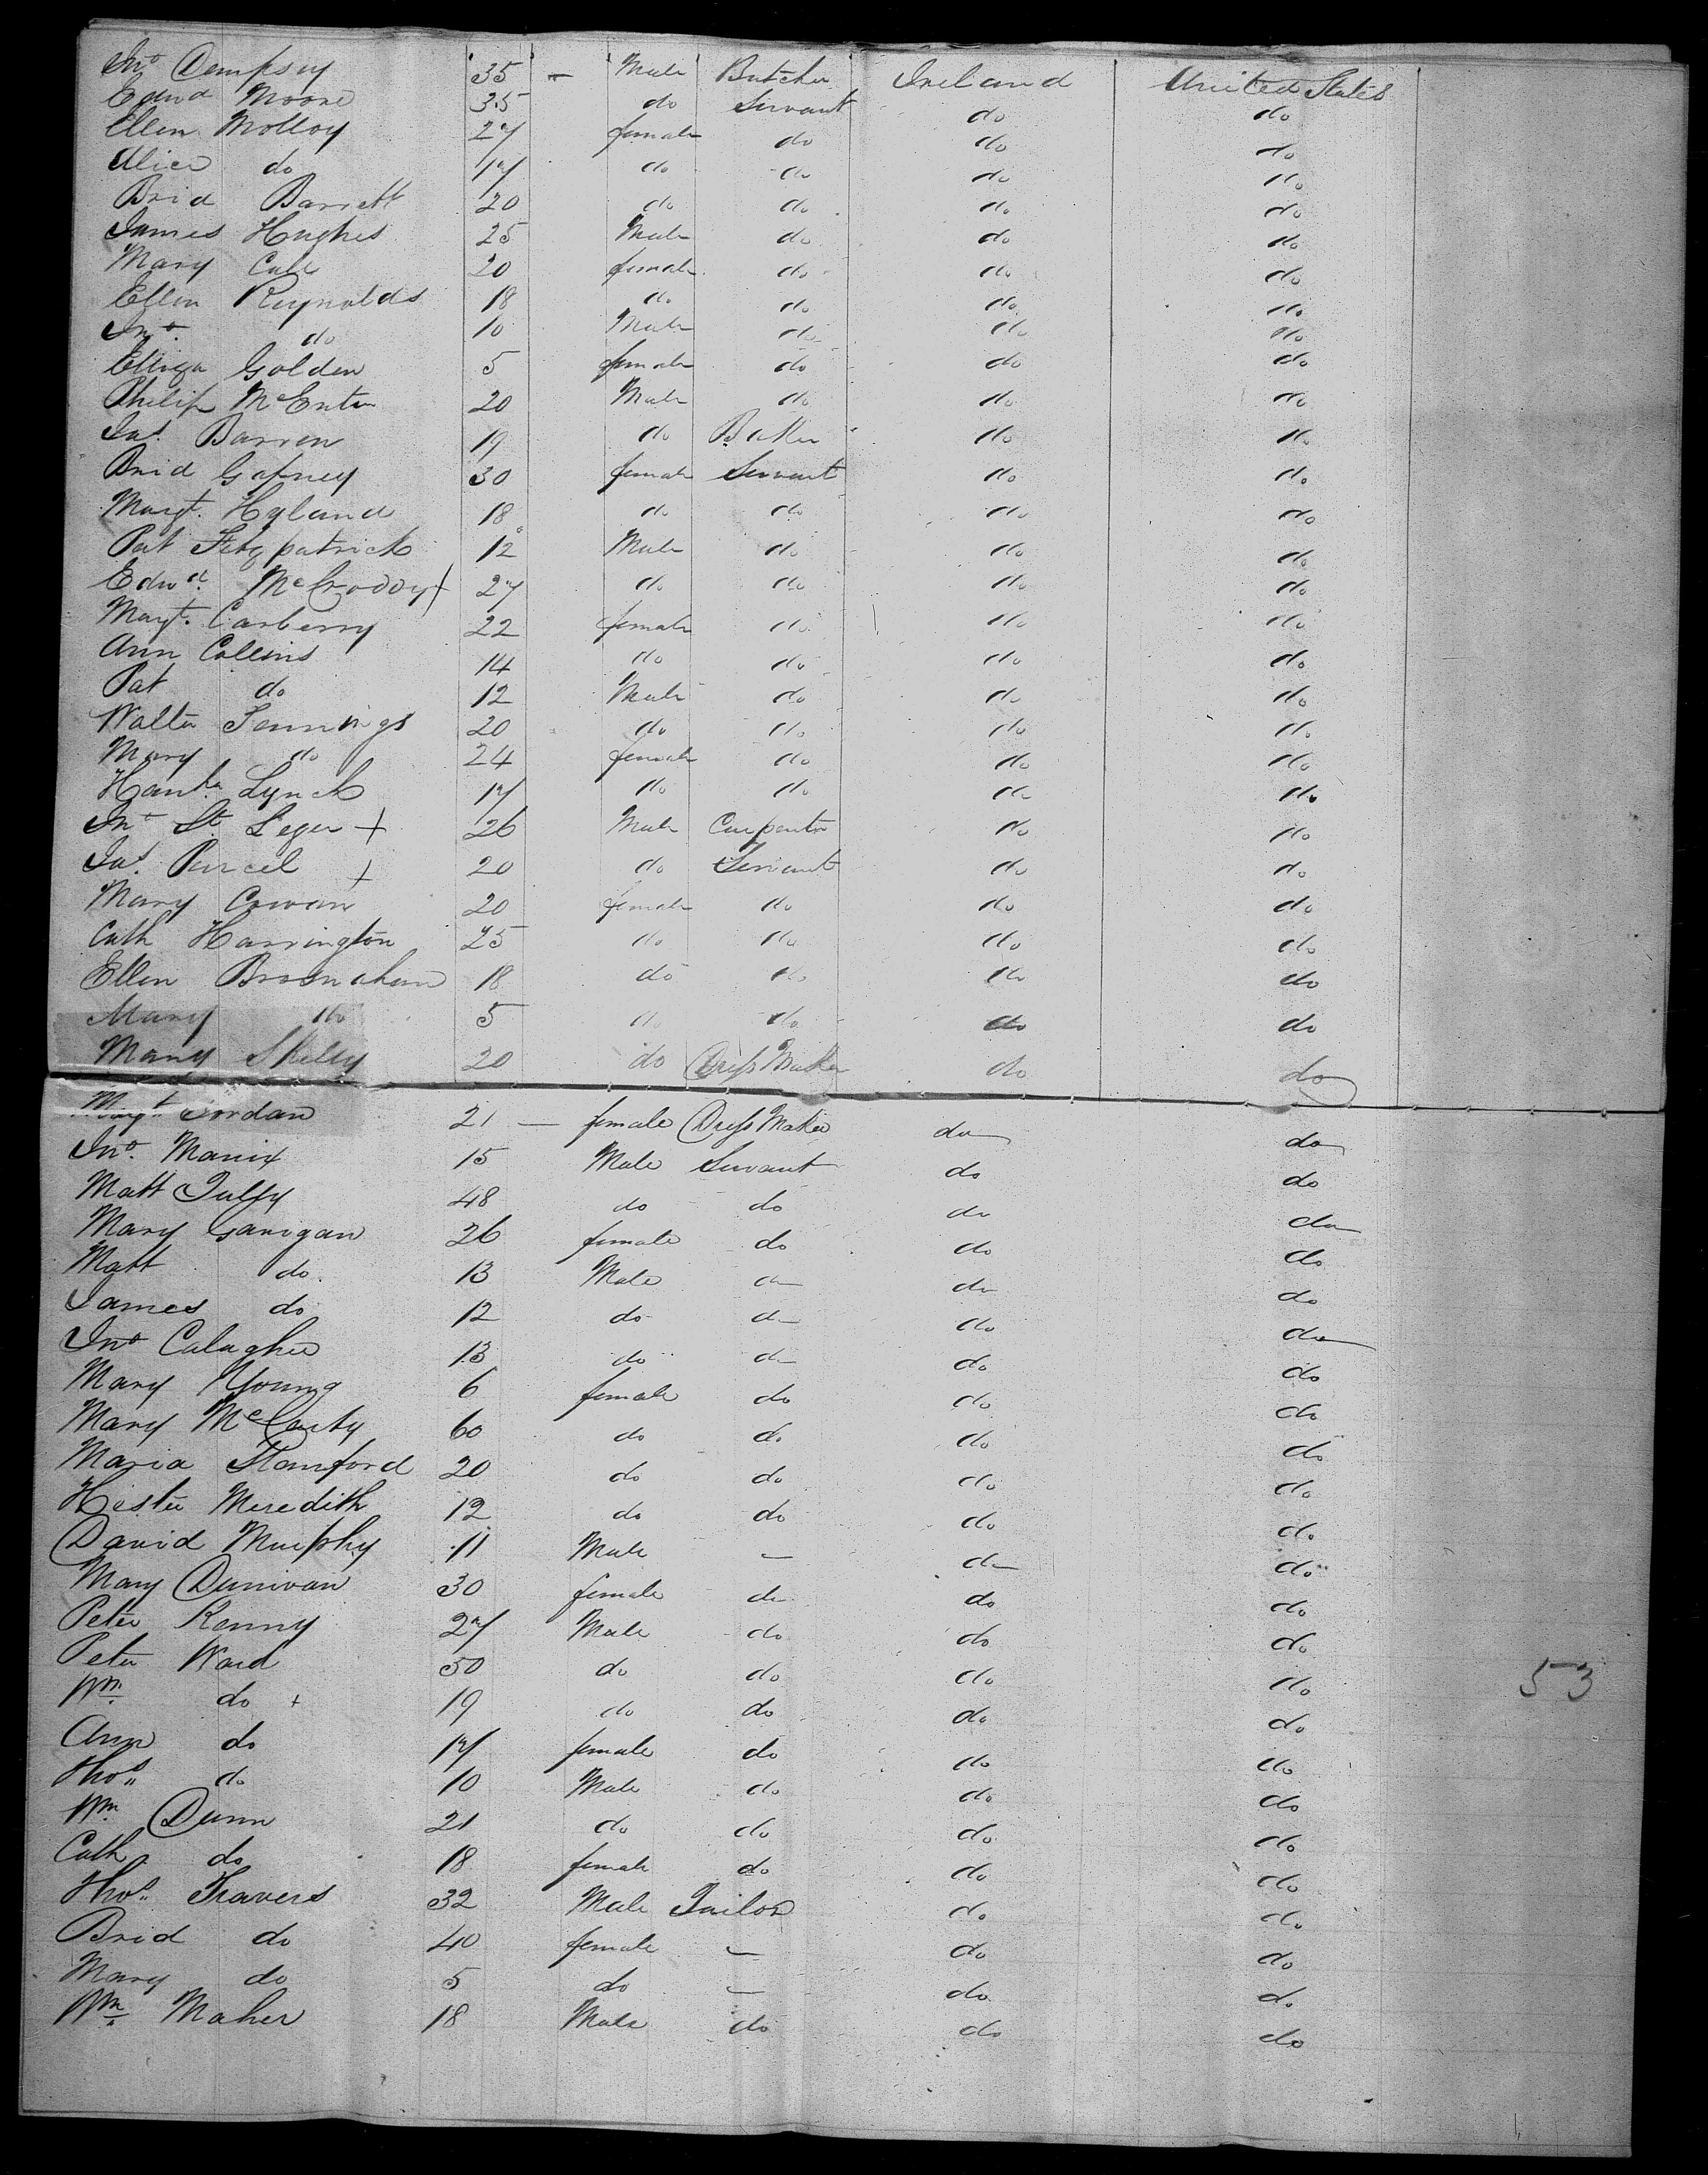 Jno Dempsey 35 — Male Butcher Ireland United States
Edwd Moore 35 do Servant do do
Ellen Molloy 27 female do do do
Alice do 17 do do do do
Brid Barrett 20 do do do do
James Hughes 25 Male do do do
Mary Cale 20 female do do do
Ellen Reynolds 18 do do do do
Jno. do 10 Male do do do
Eliza Golden 5 female do do do
Philip McEnter 20 Male do do do
Jas. Barren 19 do Baker do do
Brid Gafney 30 female Servant do do
Margt. Hyland 18 do do do do
Pat Fitzpatrick 12 Male do do do
Edwd. McGroddy + 27 do do do do
Margt. Carberry 22 female do do do
Ann Collins 14 do do do do
Pat do 12 Male do do do
Walter Jennings 20 do do do do
Mary do 24 female do do do
Hanh. Lynch 17 do do do do
Jno St Leger + 26 Male Carpenter do do
Jas. Purcel + 20 do Servant do do
Mary Cowan 20 female do do do
Cath Harrington 25 do do do do
Ellen Brosnahan 18 do do do do
Mary do 5 do do do do
Mary Skelly 20 do Dress Maker do do
Margt Jordan 21 — female Dress Maker do do
Jno. Manix 15 Male Servant do do
Matt Tully 48 do do do do
Mary Garigan 26 female do do do
Matt do 13 Male do do do
James do 12 do do do do
Jno Calagher 13 do do do do
Mary Young 6 female do do do
Mary McCarty 60 do do do do
Maria Stamford 20 do do do do
Hester Meredith 12 do do do do
David Murphy 11 Male — do do
Mary Dunivan 30 female do do do
Peter Kenny 27 Male do do do
Peter Ward 50 do do do do 53
Wm do + 19 do do do do
Ann do 17 female do do do
Thos do 10 Male do do do
Wm Dunn 21 do do do do
Cath do 18 female do do do
Thos Travers 32 Male Tailor do do
Brid do 40 female — do do
Mary do 5 do — do do
Wm Maher 18 Male do do do